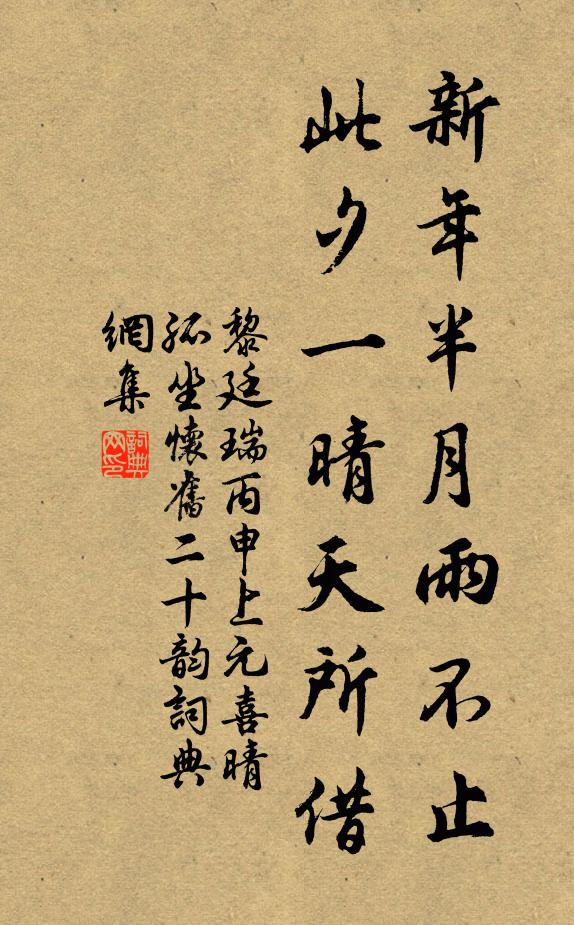 新年半月雨不止
此夕一晴天所借
黎廷瑞丙申上元喜晴
孤坐懷舊二十韵詞典
網集
詞典網印